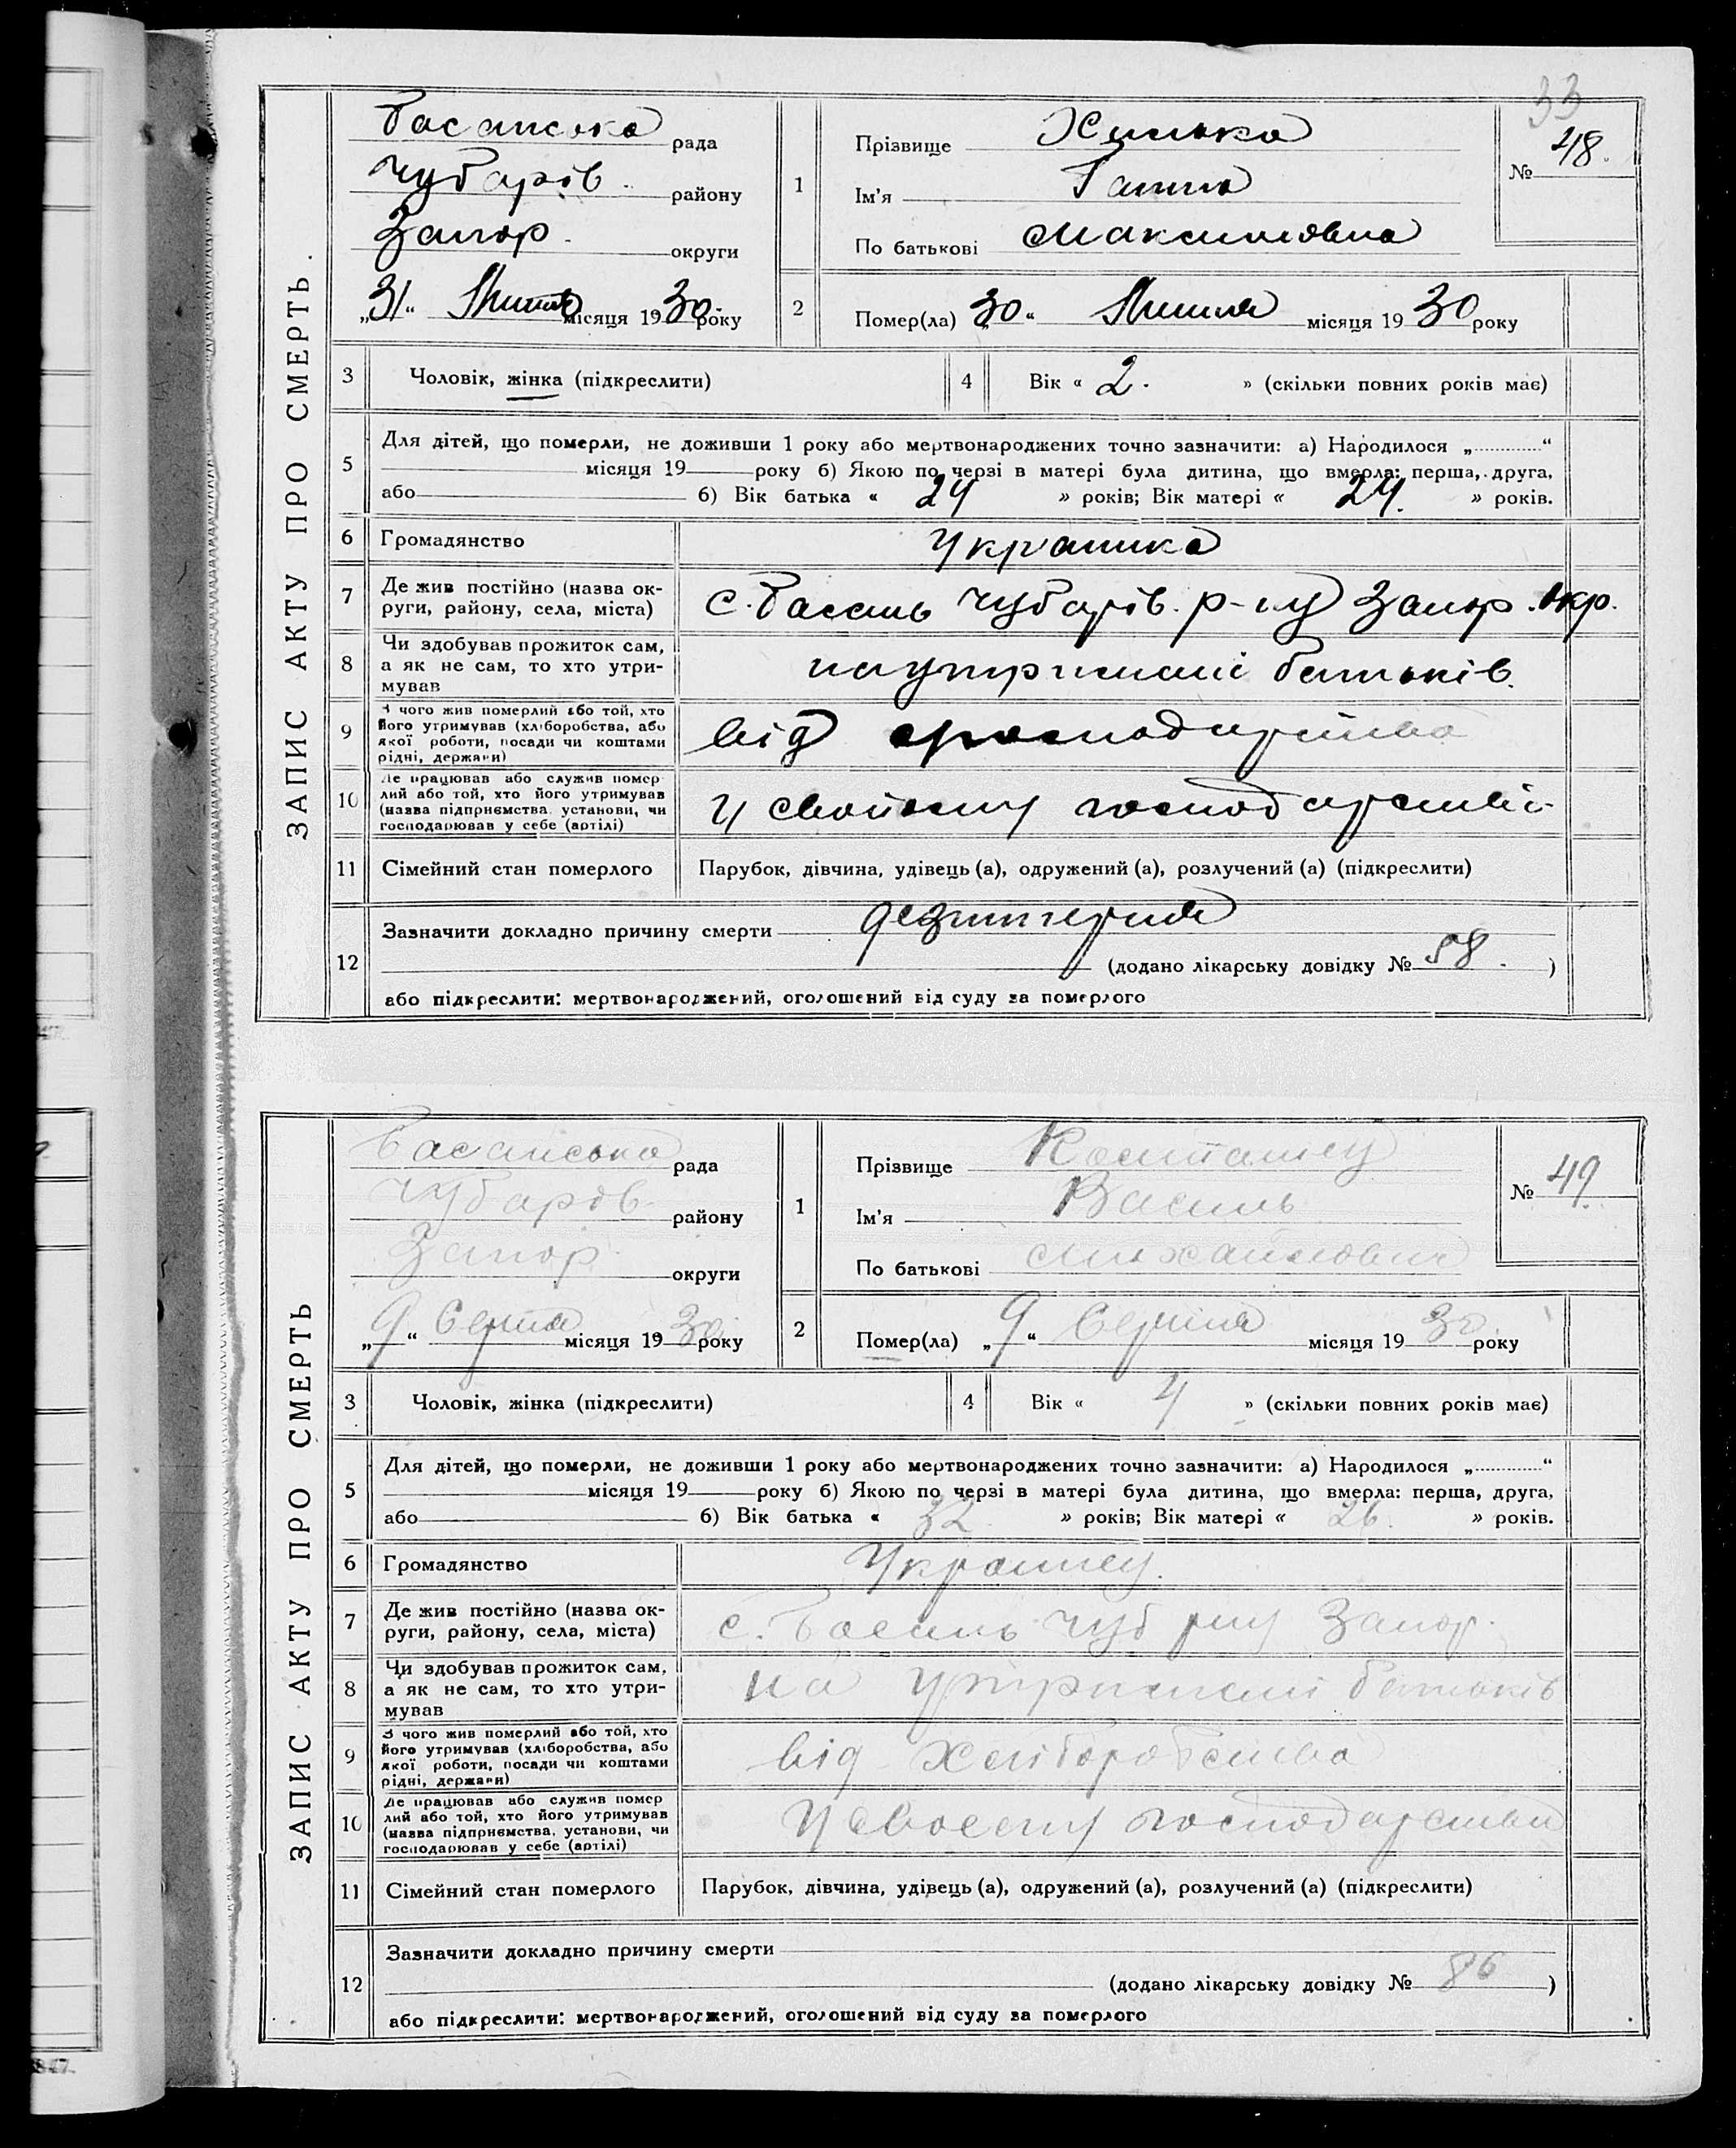 33
ЗАПИС АКТУ ПРО СМЕРТЬ.
Басанська рада
Чубарів. району
Запор. округи
„31“ Липня місяця 1930 року
1
Прізвище Хинька
Ім'я Ганна
По батькові Максимовна
№ 48.
2
Помер(ла) „30“ Липня місяця 1930 року
3 Чоловік, жінка (підкреслити)
4 Вік « 2. » (скільки повних років має)
5 Для дітей, що померли, не доживши 1 року або мертвонароджених точно зазначити: а) Народилося „ “
місяця 19 року б) Якою по черзі в матері була дитина, що вмерла: перша, друга,
або б) Вік батька « 24 » років; Вік матері « 24. » років.
6 Громадянство Украинка
7 Де жив постійно (назва ок-
руги, району, села, міста) с. Басань Чубарів. р-ну Запор. окр.
8 Чи здобував прожиток сам,
а як не сам, то хто утри-
мував на утриманні батьків.
9 З чого жив померлий або той, хто
його утримував (хліборобства, або
якої роботи, посади чи коштами
рідні, держави) від господарства
10 Де працював або служив помер
лий або той, хто його утримував
(назва підприємства, установи, чи
господарював у себе (артілі) У свойому господарстві
11 Сімейний стан померлого Парубок, дівчина, удівець (а), одружений (а), розлучений (а) (підкреслити)
12 Зазначити докладно причину смерти дезинтерия
(додано лікарську довідку № 58. )
або підкреслити: мертвонароджений, оголошений від суду за померлого
ЗАПИС АКТУ ПРО СМЕРТЬ
Басанська рада
Чубарів. району
Запор. округи
„9“ Серпня місяця 1930 року
1
Прізвище
Ім'я Василь
По батькові Михайлович
№ 49.
2
Помер(ла) „9“ Серпня місяця 1930 року
3 Чоловік, жінка (підкреслити)
4 Вік « 4 » (скільки повних років має)
5 Для дітей, що померли, не доживши 1 року або мертвонароджених точно зазначити: а) Народилося „ “
місяця 19 року б) Якою по черзі в матері була дитина, що вмерла: перша, друга,
або б) Вік батька « 32 » років; Вік матері « 26. » років.
6 Громадянство Украинец.
7 Де жив постійно (назва ок-
руги, району, села, міста) с. Басань Чуб рну Запор.
8 Чи здобував прожиток сам,
а як не сам, то хто утри-
мував на утриманні батьків
9 З чого жив померлий або той, хто
його утримував (хліборобства, або
якої роботи, посади чи коштами
рідні, держави) від хліборобства
10 Де працював або служив помер
лий або той, хто його утримував
(назва підприємства, установи, чи
господарював у себе (артілі) У своєму господарстві
11 Сімейний стан померлого Парубок, дівчина, удівець (а), одружений (а), розлучений (а) (підкреслити)
12 Зазначити докладно причину смерти
(додано лікарську довідку № 86 )
або підкреслити: мертвонароджений, оголошений від суду за померлого